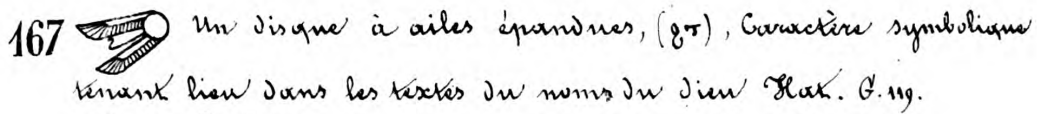 167 Un disque à ailes épandues, (gr), Caractère symbolique
tenant lieu dans les textes du noms du dieu Hat. G. 119.